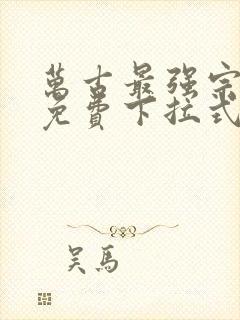 萬古最强宗
免費下拉式
吴馬